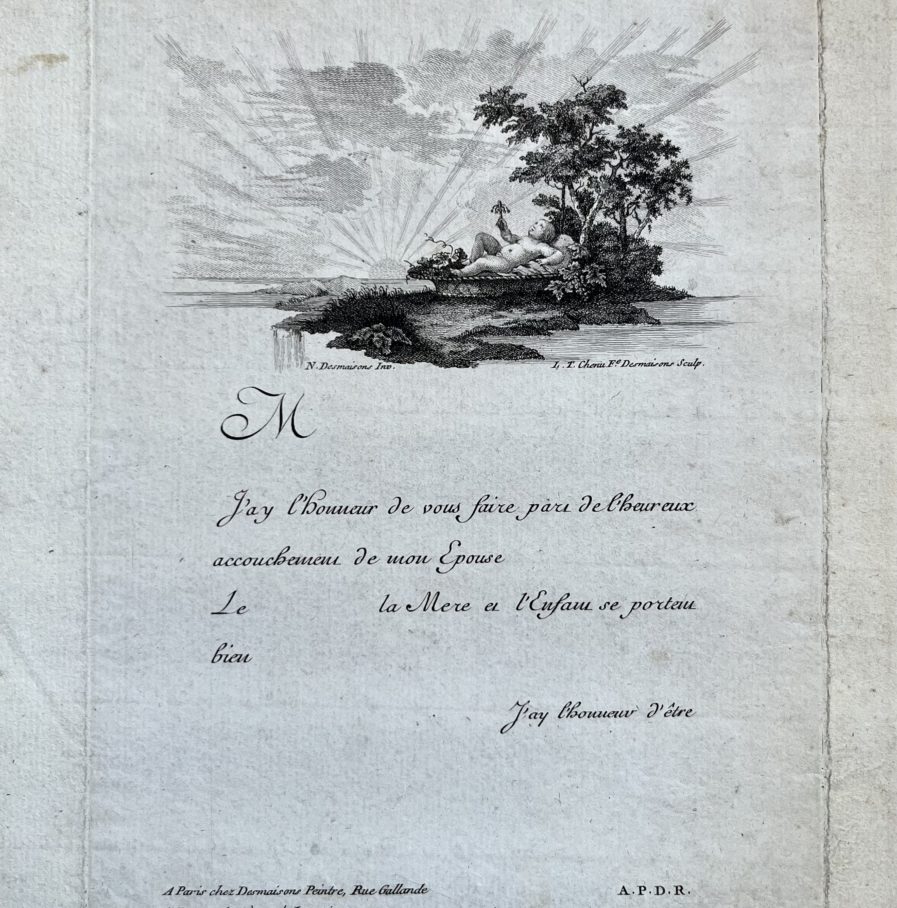 N. Desmaisons Inv.
L. T. Chenu Fᵉ Desmaisons Sculp.
M
J'ay l'honneur de vous faire part de l'heureux
accouchement de mon Epouse
Le la Mere et l'Enfant se portent
bien
J'ay l'honneur d'être
A Paris chez Desmaisons Peintre, Rue Gallande
A.P.D.R.